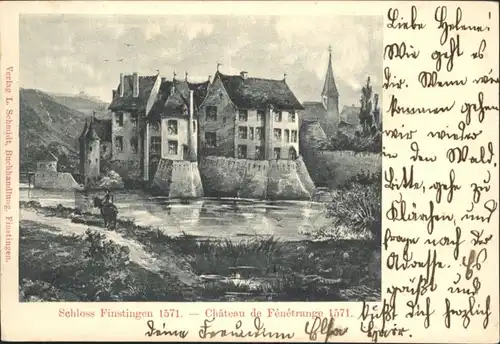 Verlag L. Schmidt, Buchhandlung, Finstingen.
Schloss Finstingen 1571. — Château de Fénétrange 1571.
Liebe Helene!
Wie geht es
dir. Wenn wir
kommen gehen
wir wieder
in den Wald.
Bitte, gehe zu
Klärchen, und
frage nach der
Adresse. Es
grüßt und
küßt dich herzlich
deine Freundin Elsa